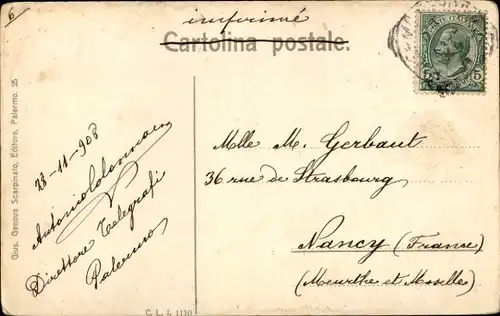 6
imprimé
Cartolina postale.
5 5
Gius. Genova Scarpinato, Editore, Palermo. 25
28-11-908
Antonio Colonna
Direttore Telegrafi
Palermo
Mlle M. Gerbaut
36 rue de Strasbourg
Nancy (France)
(Meurthe et Moselle)